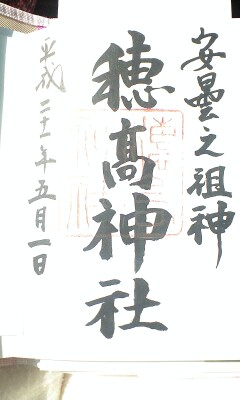 安曇之祖神
穂髙神社
平成二十一年五月一日